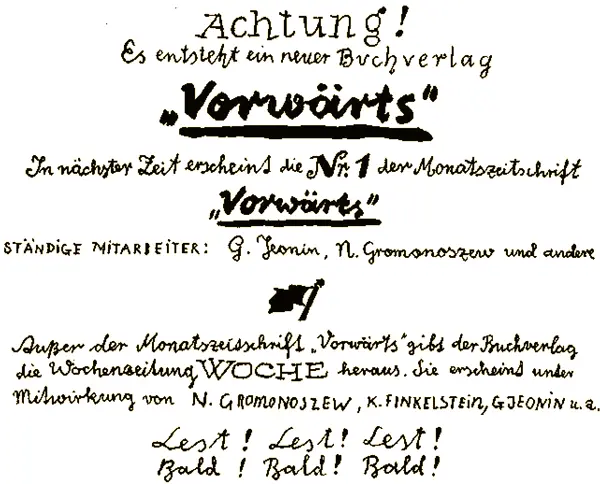 Achtung!
Es entsteht ein neuer Buchverlag
„Vorwärts“
In nächster Zeit erscheint die Nr. 1 der Monatszeitschrift
„Vorwärts“
STÄNDIGE MITARBEITER: G. Jeonin, N. Gromonoszew und andere
Außer der Monatszeitschrift „Vorwärts“ gibt der Buchverlag
die Wochenzeitung WOCHE heraus. Sie erscheint unter
Mitwirkung von N. GROMONOSZEW, K. FINKELSTEIN, G JEONIN u. a.
Lest! Lest! Lest!
Bald! Bald! Bald!